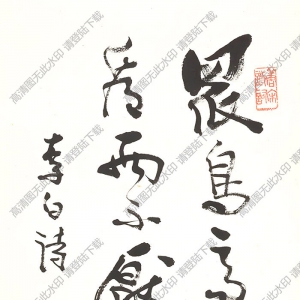 眾鳥高
看兩不厭
李白詩
高清图无此水印 请登陆下载